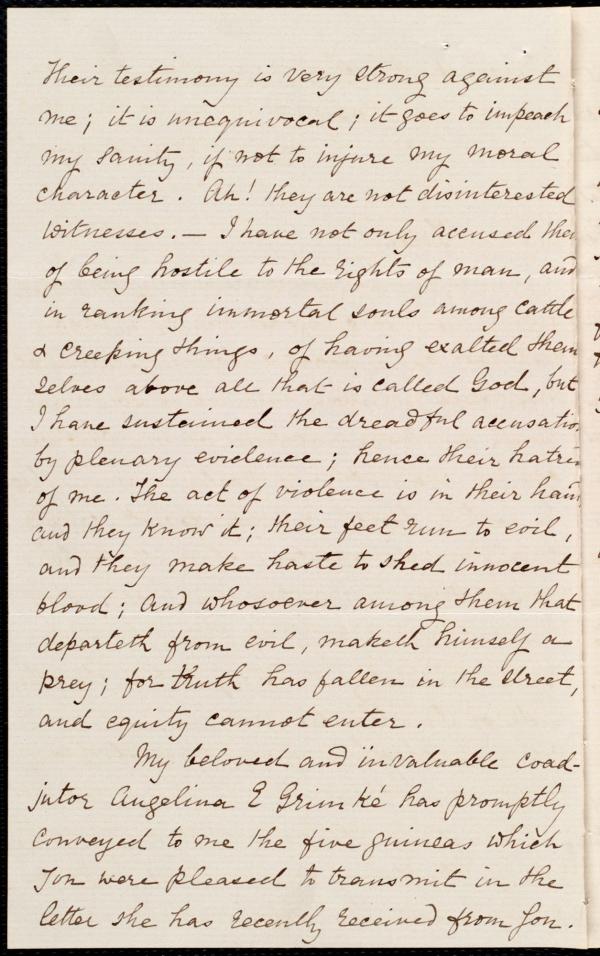 Their testimony is very strong against
me; it is unequivocal; it goes to impeach
my sanity, if not to injure my moral
character. Ah! they are not disinterested
witnesses. — I have not only accused them
of being hostile to the rights of man, and
in ranking immortal souls among cattle
& creeping things, of having exalted them
selves above all that is called God, but
I have sustained the dreadful accusatio
by plenary evidence; hence their hatre
of me. The act of violence is in their han
and they know it; their feet run to evil,
and they make haste to shed innocent
blood; and whosoever among them that
departeth from evil, maketh himself a
prey; for truth has fallen in the street,
and equity cannot enter.
My beloved and invaluable coad-
jutor Angelina E Grimké has promptly
conveyed to me the five guineas which
You were pleased to transmit in the
letter she has recently received from You.